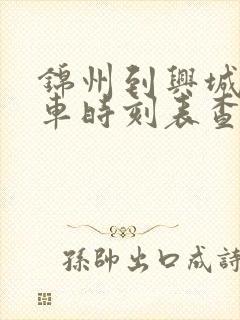 錦州到興城
車時刻表查
孫帥出口成詩